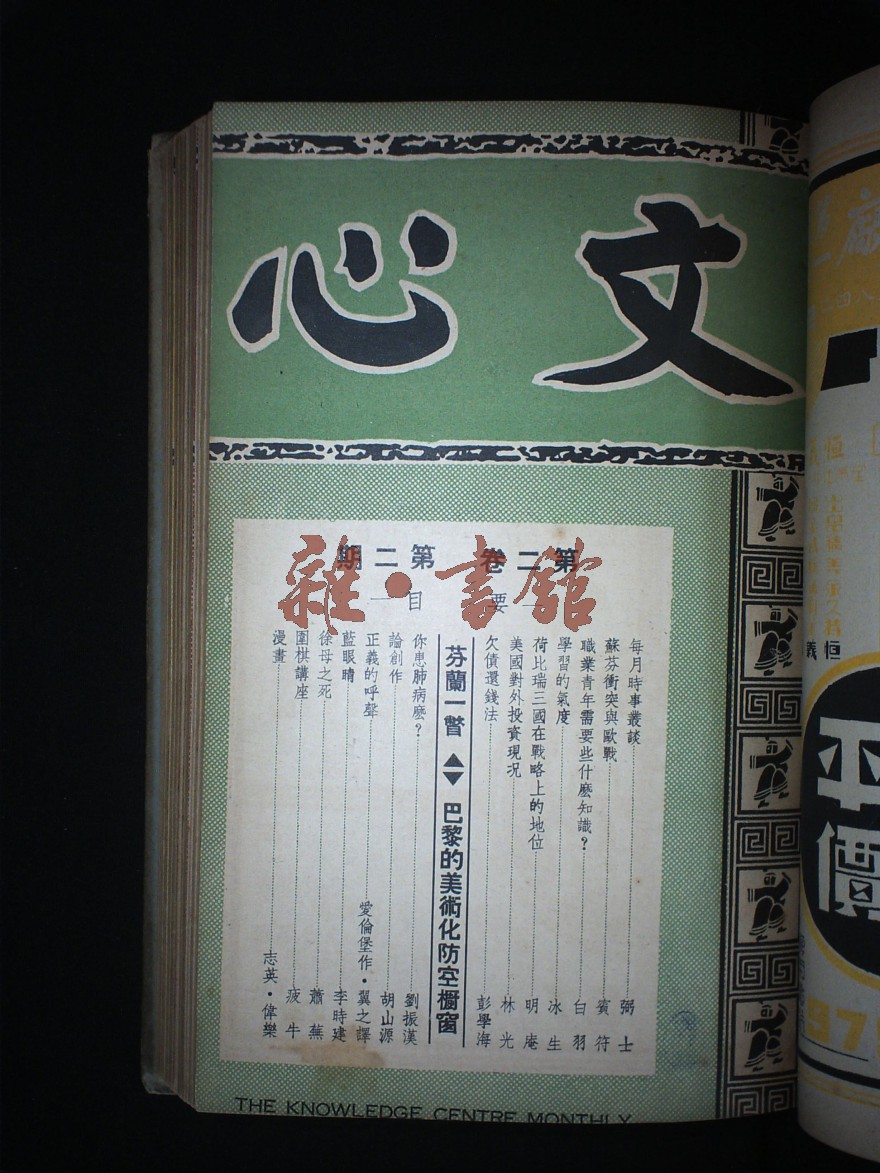 文心
第二卷 第二期
要目
每月時事叢談 弼士
蘇芬衝突與歐戰 賓符
職業青年需要些什麽知識？ 白羽
學習的氣度 冰生
荷比瑞三國在戰略上的地位 明庵
美國對外投資現况 林光
欠債還錢法 彭學海
芬蘭一瞥 巴黎的美術化防空櫥窗
你患肺病麽？ 劉振漢
論創作 胡山源
正義的呼聲 愛倫堡作・翼之譯
藍眼睛 李時建
徐母之死 蕭蕪
圍棋講座 疲牛
漫畫 志英・偉樂
THE KNOWLEDGE CENTRE MONTHLY
雜・書館
平價